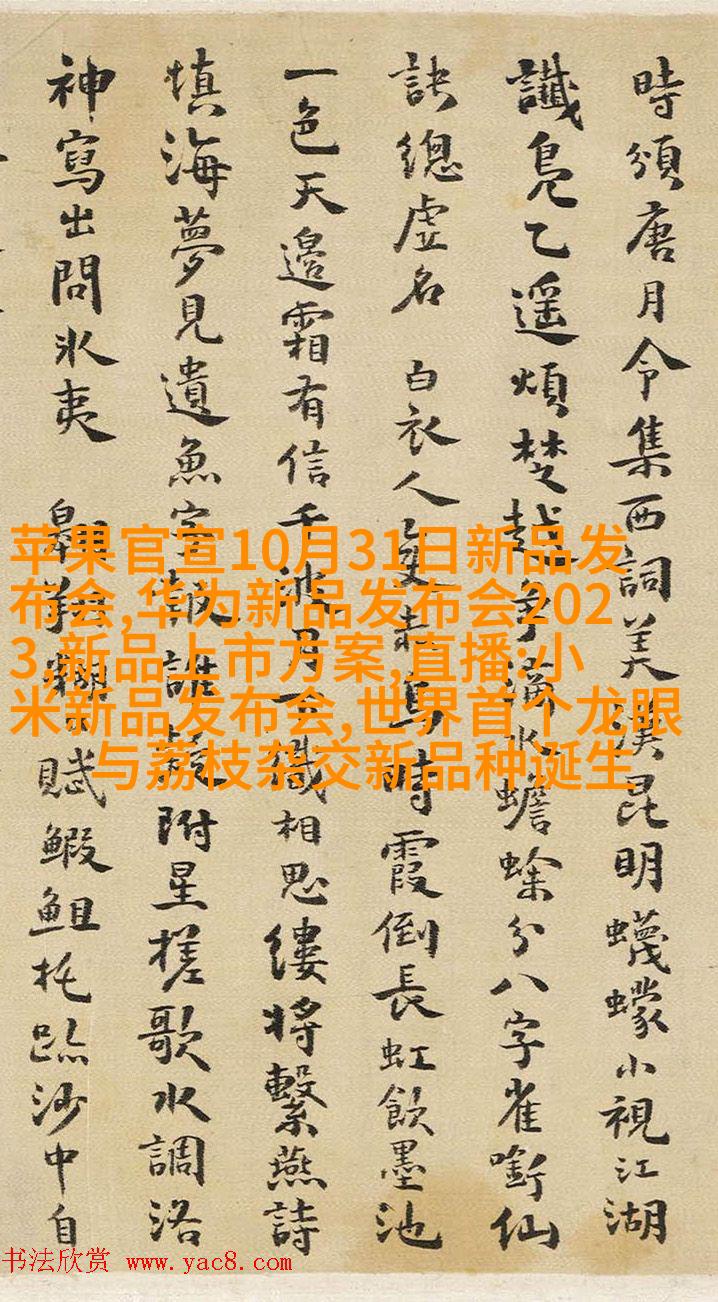 時頒唐月令集西詞美漢昆明蠛蠓小視江湖
讖鳧乙遥煩楚越爭滿水蟾蜍分八字雀銜仙
訣總虛名 白衣人時霞倒長虹飲墨池
一色天邊霜有信千波月織相思縷將繫燕詩
填海夢見遺魚字報誰疑附星槎歌水調洛
神寫出問冰夷 翱翔賦鰕䱉托跡沙中自
苹果官宣10月31日新品发
布会,华为新品发布会202
3,新品上市方案,直播:小
米新品发布会,世界首个龙眼
与荔枝杂交新品种诞生
书法欣赏 www.yac8.com